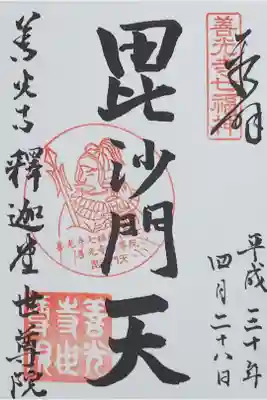 善光寺七福神
奉拝
平成三十年
四月二十八日
毘沙門天
善光寺 釋迦堂 世尊院
善光
寺世
尊院